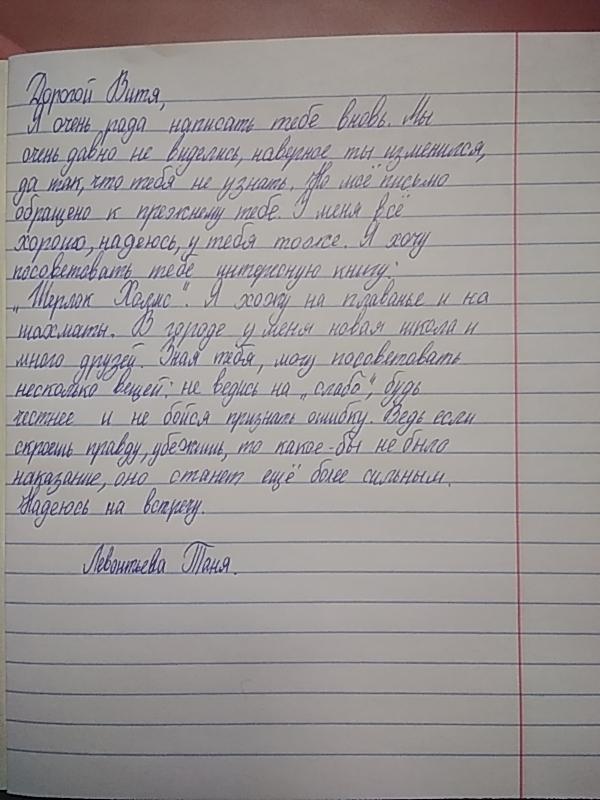 Дорогой Витя,
Я очень рада написать тебе вновь. Мы
очень давно не виделись, наверное ты изменился,
да так, что тебя не узнать. Но моё письмо
обращено к прежнему тебе. У меня всё
хорошо, надеюсь, у тебя тоже. Я хочу
посоветовать тебе интересную книгу:
„Шерлок Холмс". Я хожу на плаванье и на
шахматы. В городе у меня новая школа и
много друзей. Зная тебя, могу посоветовать
несколько вещей: не ведись на „слабо", будь
честнее и не бойся признать ошибку. Ведь если
скроешь правду, убежишь, то какое-бы не было
наказание, оно станет ещё более сильным.
Надеюсь на встречу.
Левонтьева Таня.